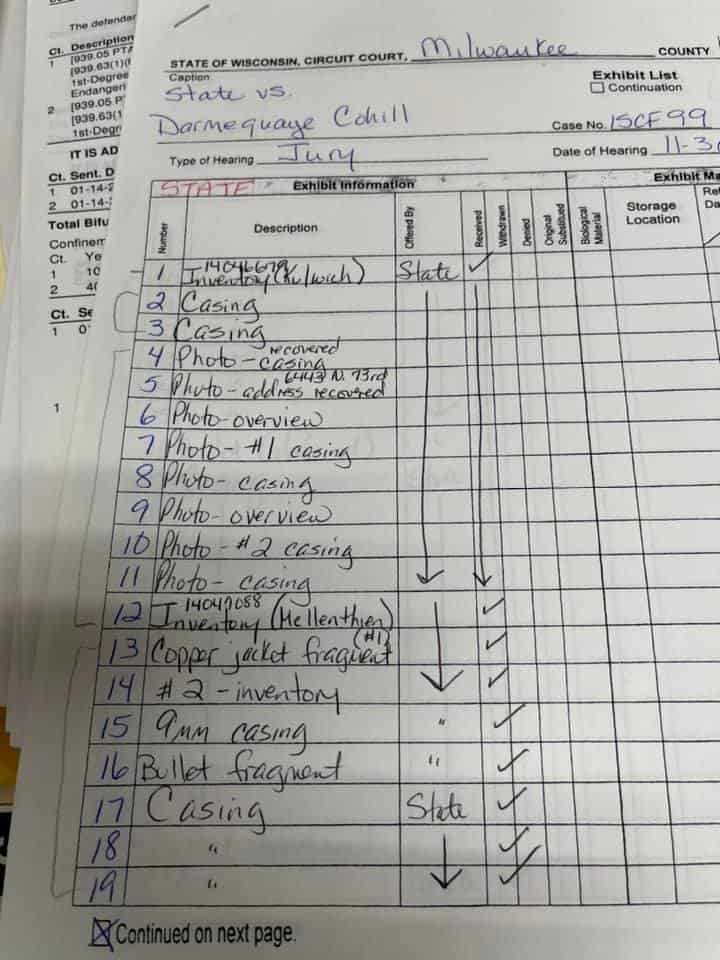 The defendan
Ct. Description
1 [939.05 PTA
[939.63(1)(
1st-Degree
Endangeri
2 [939.05 P
[939.63(1
1st-Degr
IT IS AD
Ct. Sent. D
1 01-14-2
2 01-14-
Total Bifu
Confinem
Ct. Ye
1 10
2 4
Ct. Se
1 0
1
STATE OF WISCONSIN, CIRCUIT COURT, Milwaukee COUNTY
Caption
State vs.
Darmequaye Cohill
Exhibit List
Continuation
Case No. 15CF99
Type of Hearing Jury
Date of Hearing 11-3
STATE Exhibit Information Exhibit Ma
Number Description Offered By Received Withdrawn Denied Original Substituted Biological Material Storage Location Ret Da
1 Inventory 14046679 (Kulwich) State ✓
2 Casing
3 Casing
4 Photo - recovered casing
5 Photo - address recovered 6443 N. 73rd
6 Photo-overview
7 Photo - #1 casing
8 Photo - casing
9 Photo - overview
10 Photo - #2 casing
11 Photo - casing
12 Inventory 14047088 (Hellenthien) ✓
13 Copper jacket fragment (#1) ✓
14 #2 - inventory ✓
15 9mm casing " ✓
16 Bullet fragment " ✓
17 Casing State ✓
18 " ✓
19 " ✓
Continued on next page.